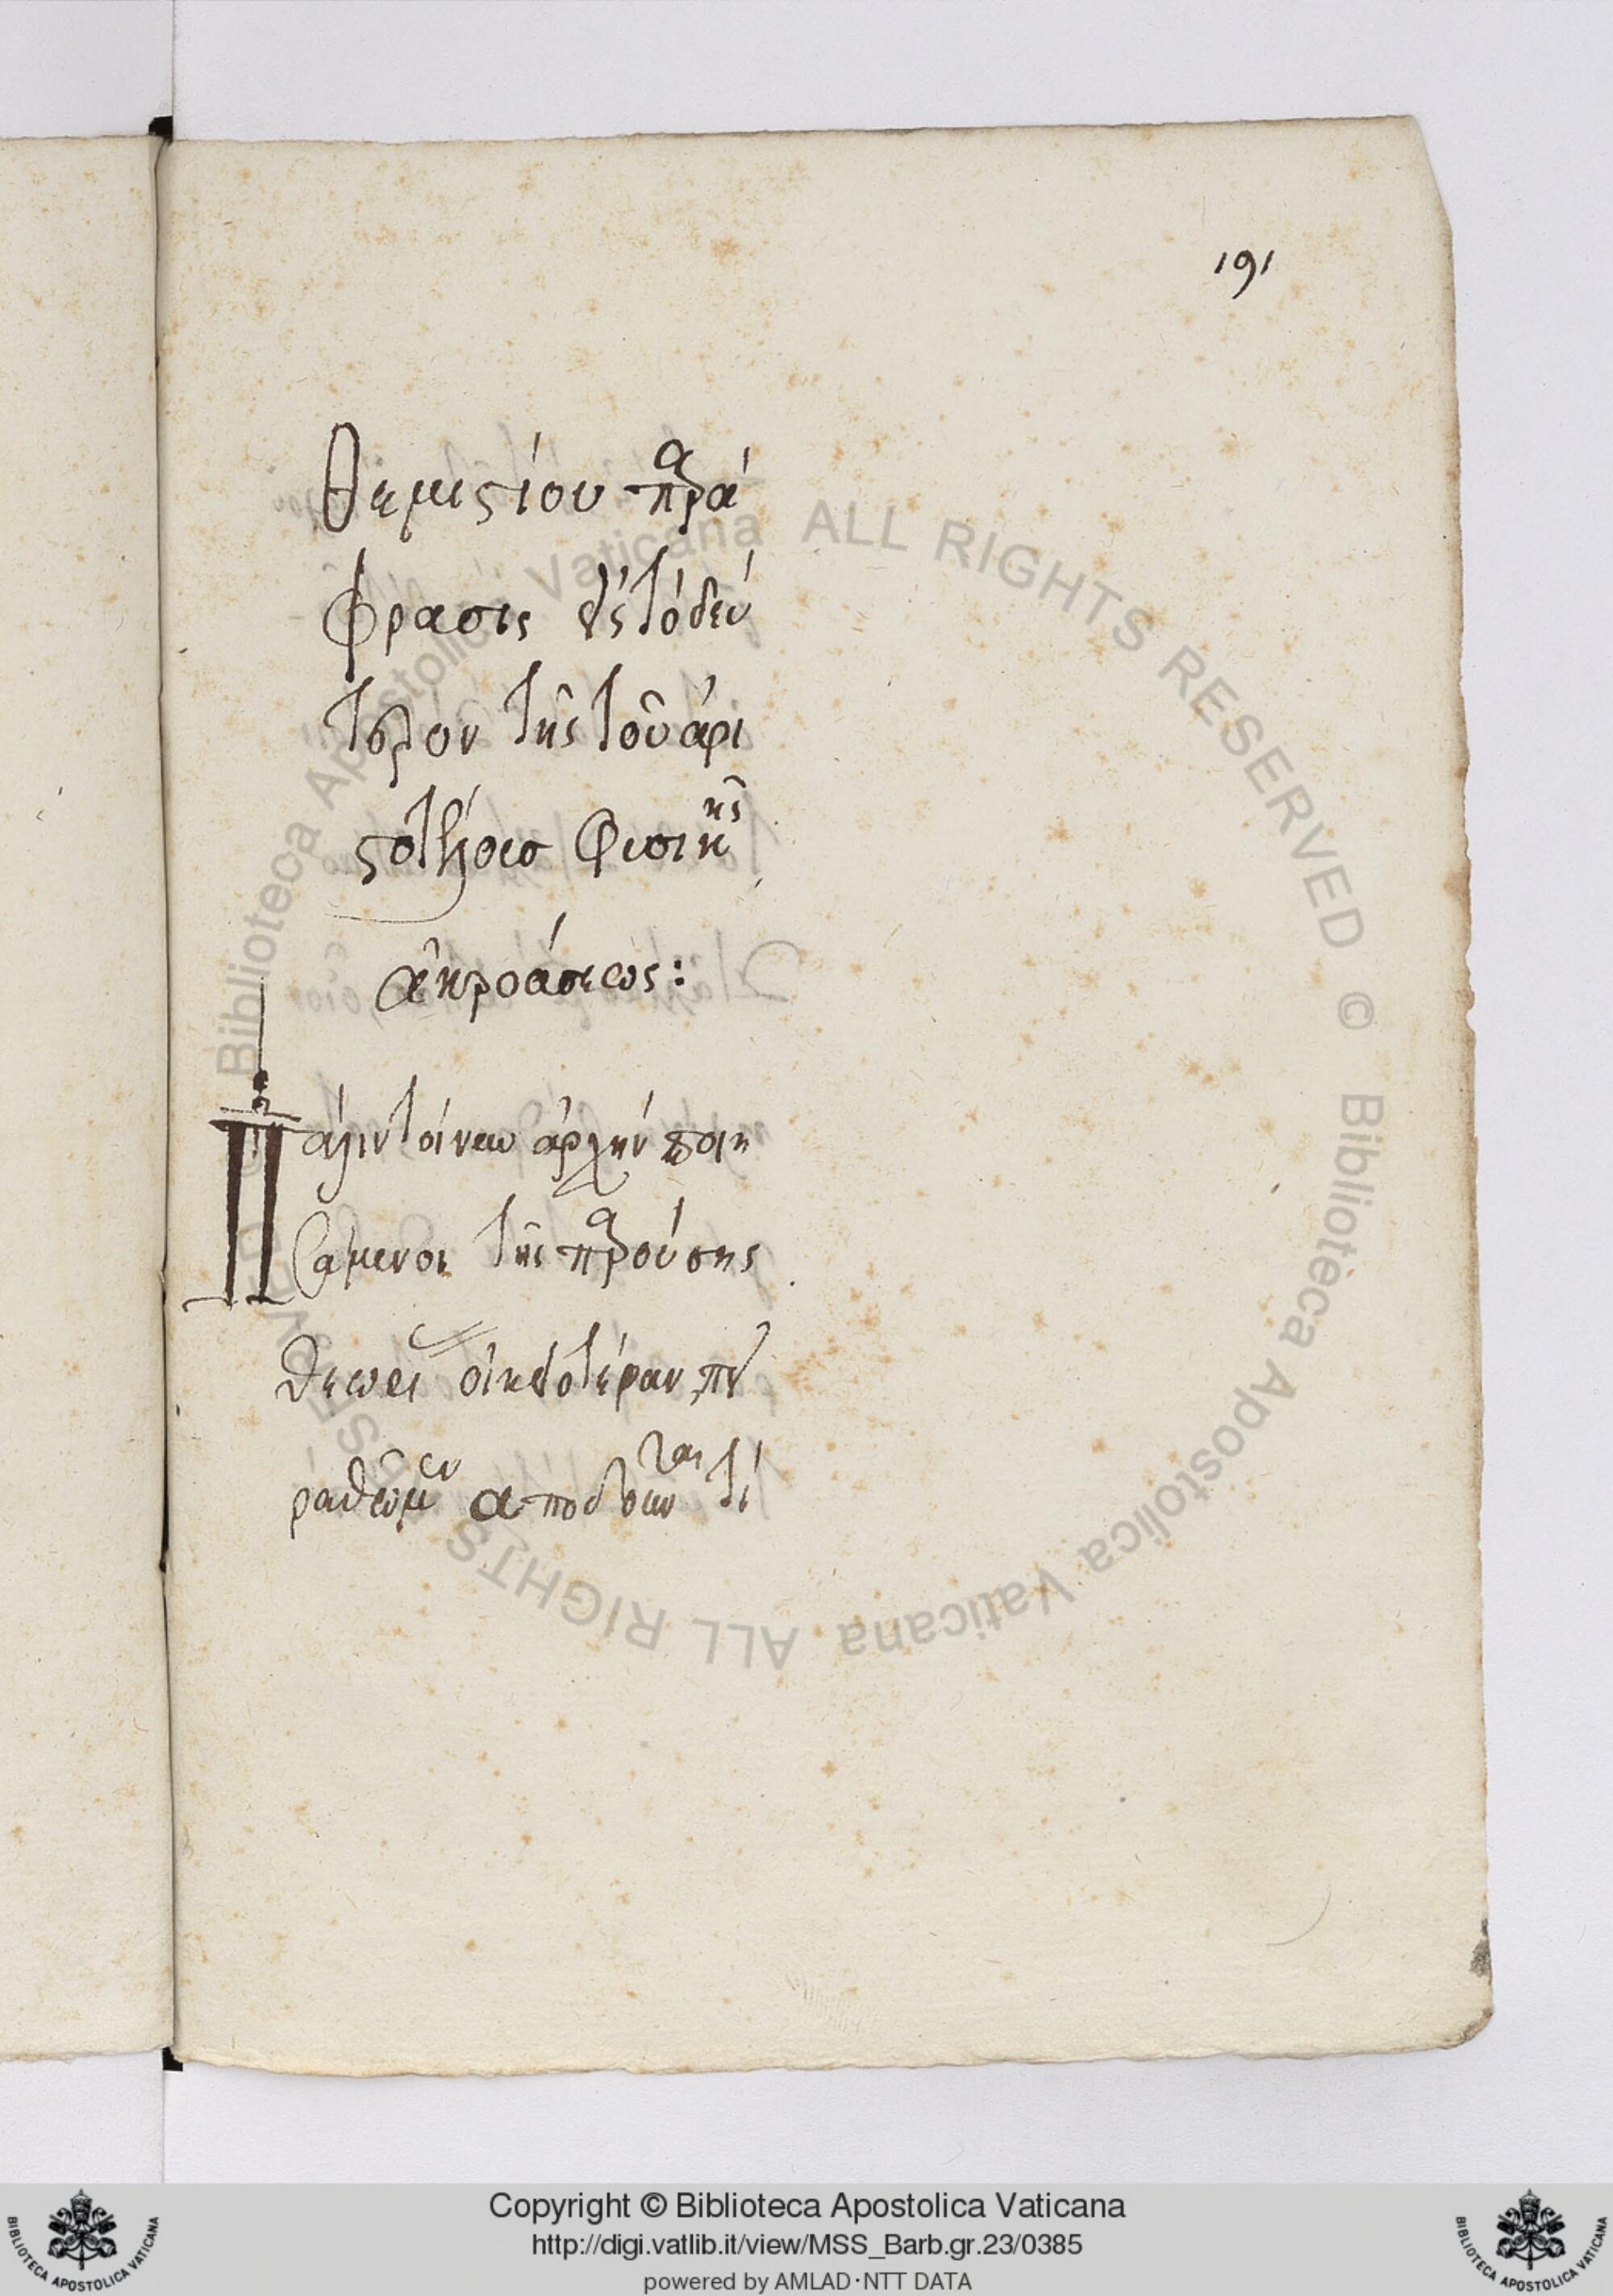 191
Θεμιστίου παρά
φρασις εἰς τὸ δεύ
τερον τῆς τοῦ ἀρι
στοτέλους φυσικῆς
ἀκροάσεως:
Πάλιν τοίνυν ἀρχὴν ποιη
σάμενοι τῆς παρούσης
οἰκειοτέραν πει
ραθῶμεν τί
Biblioteca Apostolica Vaticana ALL RIGHTS RESERVED © Biblioteca Apostolica Vaticana ALL RIGHTS RESERVED ©
Copyright © Biblioteca Apostolica Vaticana
http://digi.vatlib.it/view/MSS_Barb.gr.23/0385
powered by AMLAD·NTT DATA
BIBLIOTECA APOSTOLICA VATICANA
BIBLIOTECA APOSTOLICA VATICANA